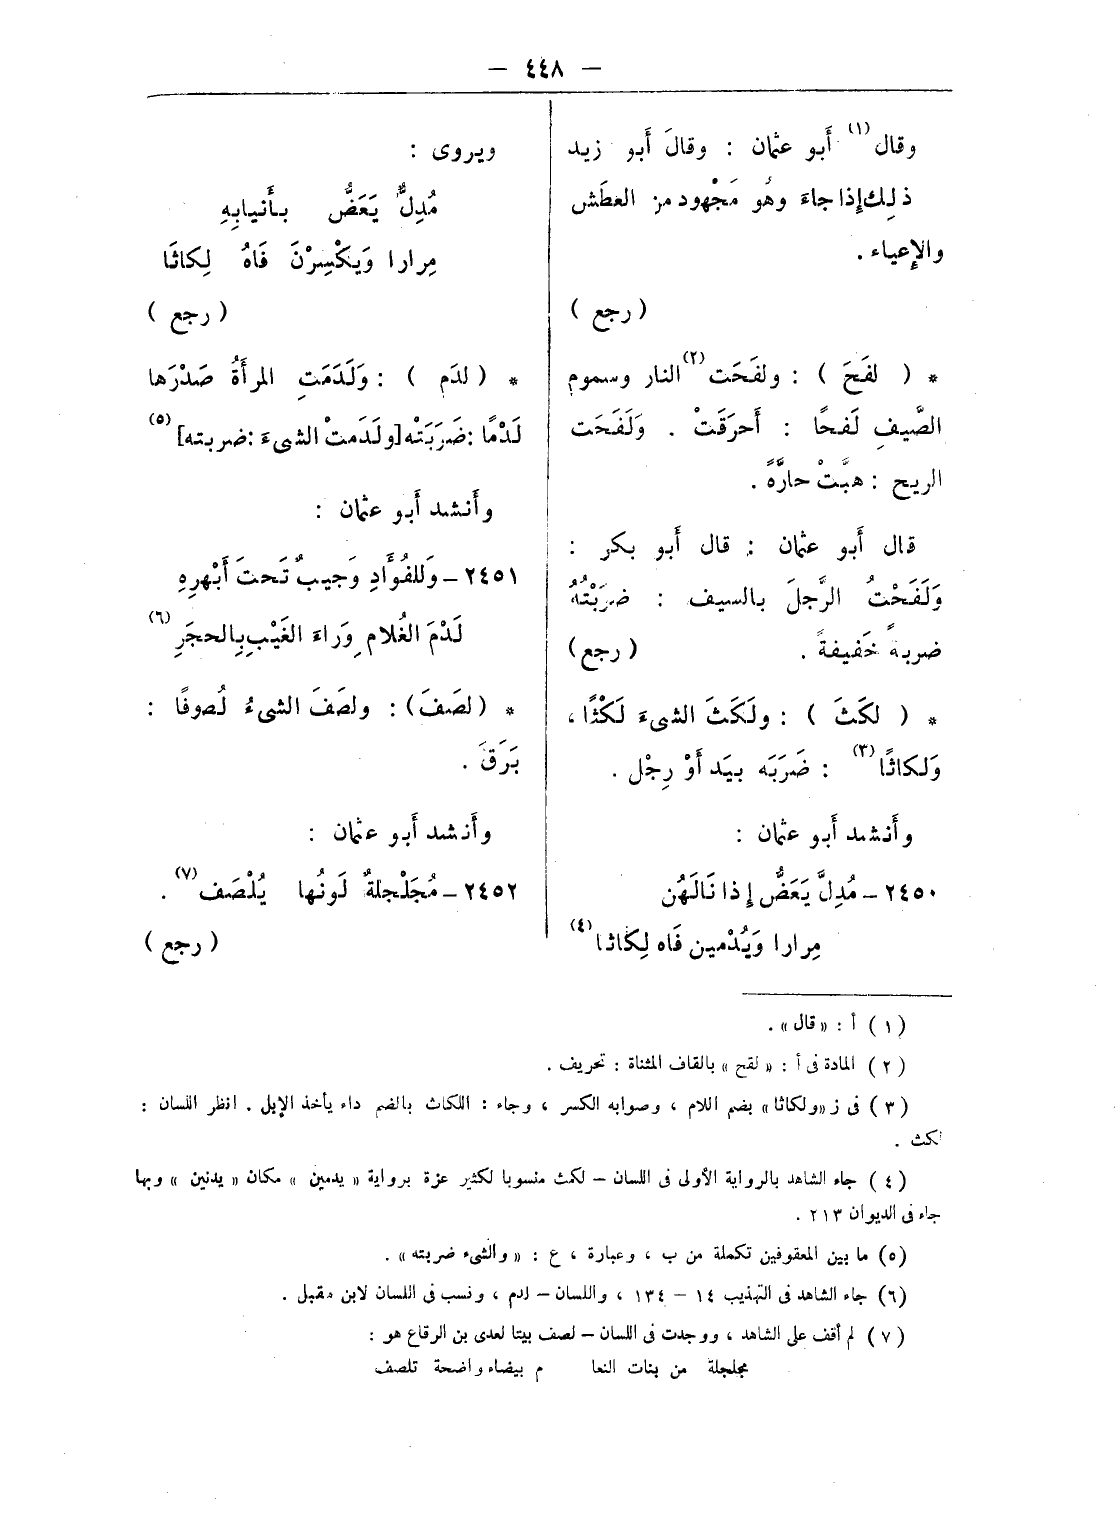 — ٤٤٨ —
وقال (١) أبو عثمان : وقالَ أَبو زيد
ذلِك إِذا جاءَ وهُو مَجْهود من العطَش
والإعياء .
( رجع )
* ( لفَحَ ) : ولفَحَت (٢) النار وسموم
الصَّيفِ لَفحًا : أَحرقَتْ . وَلَفَحَت
الريح : هبَّتْ حارَّةً .
قال أَبو عثمان : قال أَبو بكر :
وَلَفَحْتُ الرَّجلَ بالسيف : ضرَبْتُهُ
ضربةً خَفيفةً . ( رجع )
* ( لكَثَ ) : ولَكَثَ الشىءَ لَكْثًا ،
وَلكاثًا (٣) : ضَرَبَه بيَد أَوْ رِجْل .
وأَنشد أَبو عثمان :
٢٤٥٠ – مُدِلَّ يَعَضُّ إِذا نَالَهُن
مِرارا وَيُدْمين فَاه لِكاثا (٤)
ويروى :
مُدِلٌّ يَعَضُّ بأَنيابِهِ
مِرارا وَيكْسِرْنَ فَاهُ لِكاثَا
( رجع )
* ( لدَم ) : وَلَدَمَتِ المرأَةُ صَدْرَها
لَدْمًا : ضَرَبَتْه [ولَدَمتْ الشىءَ : ضربته] (٥)
وأَنشد أَبو عثمان :
٢٤٥١ – وَللفُوَّادِ وَجيبٌ تَحتَ أَبْهرِهِ
لَدْمَ الغُلامِ وَراءَ الغَيْبِ بِالحجَرِ (٦)
* (لصَفَ) : ولصَفَ الشىءُ لُصوفًا :
بَرَقَ .
وأَنشد أَبو عثمان :
٢٤٥٢ – مُجَلْجلةٌ لَونُها يُلْصَف (٧) .
( رجع )
(١) أ : «قال» .
(٢) المادة فى أ : «لقح» بالقاف المثناة : تحريف .
(٣) فى ز «ولكاثا» بضم اللام ، وصوابه الكسر ، وجاء : اللكاث بالضم داء يأخذ الإبل . انظر اللسان :
لكث .
(٤) جاء الشاهد بالرواية الأولى فى اللسان – لكث منسوبا لكثير عزة برواية «يدمين» مكان «يدنين» وبها
جاء فى الديوان ٢١٣ .
(٥) ما بين المعقوفين تكملة من ب ، وعبارة ، ع : «والشىء ضربته» .
(٦) جاء الشاهد فى التهذيب ١٤ – ١٣٤ ، واللسان – لدم ، ونسب فى اللسان لابن مقبل .
(٧) لم أقف على الشاهد ، ووجدت فى اللسان – لصف بيتا لعدى بن الرقاع هو :
مجلجلة من بنات النعا م بيضاء واضحة تلصف